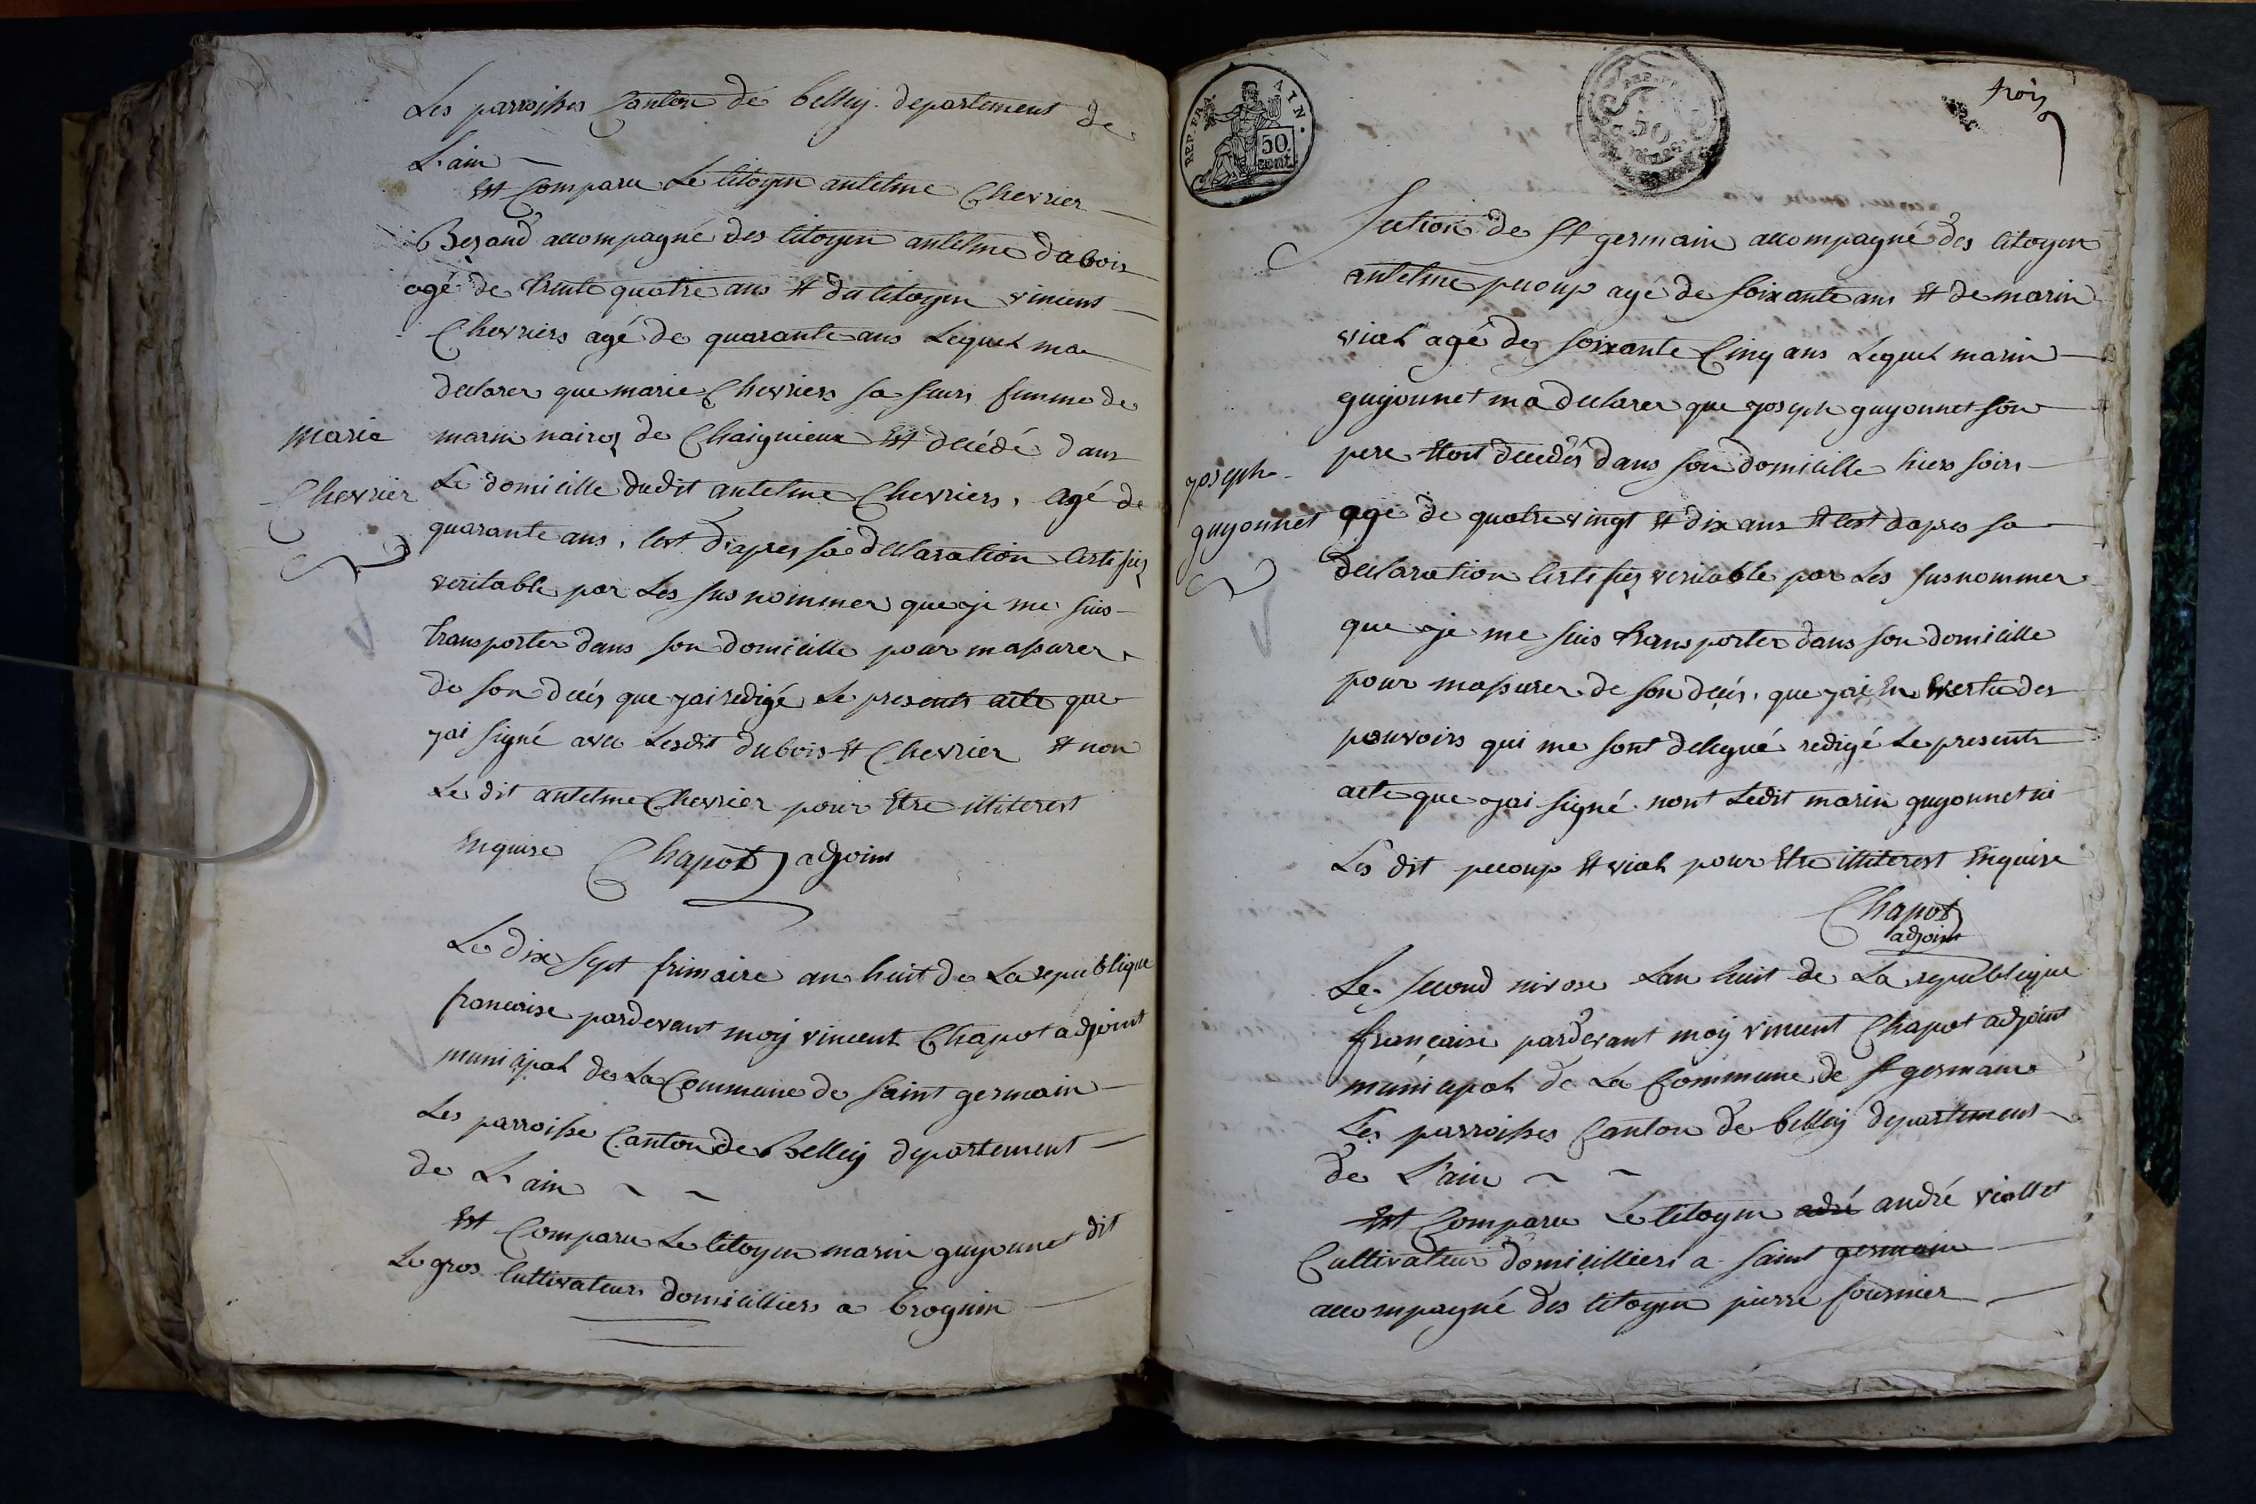 Les parroisses Canton de belley departement de
L'ain
Est Comparu Le Citoyen antelme Chevrier
Besand accompagné des citoyen antelme dubois
agé de trente quatre ans et du citoyen vincent
Chevriers agé de quarante ans Lequel ma
declarer que marie Chevriers sa seurs femme de
marin nairoz de Chaignieux Est décédé dans
Le domicille dudit antelme Chevriers, agé de
quarante ans, Cest d'apres sa declaration Certifiez
veritable par Les sus nommer que je me suis
transporter dans son domicille pour massurer
de son decés que jai redigé Le presents acte que
jai signé avec Lesdit dubois et Chevrier et non
Le dit antelme Chevrier pour Etre illiterest
Enquise Chapot adjoint
marie
Chevrier
Le dix sept frimaire an huit de La republique
francoise pardevant moy vincent Chapot adjoint
municipal de La Commune de saint germain
Les parroisse Canton de Belley departement
de L'ain
Est Comparu Le Citoyen marin guyonnet dit
Le gros Cultivateurs domicilliers a brognin
REP. FRA. AIN.
50
cent.
REP. FRA.
50
trois
Section de St germain accompagné des citoyen
antelme pecoup agé de soixante ans et de marin
vial agé de soixante Cinq ans Lequel marin
guyonnet ma declarer que joseph guyonnet son
pere Etoit decedés dans son domicille hiers soirs
agé de quatre vingt et dix ans et Cest dapres sa
declaration Certifiez veritable par Les susnommer
que je me suis transporter dans son domicille
pour massurer de son decés, que jai En vertu des
pouvoirs qui me sont delegué redigé Le presents
acte que jai signé nont Ledit marin guyonnet ni
Les dit pecoup et vial pour Etre illiterest Enquise
Chapot
adjoint
joseph
guyonnet
Le second nivose Lan huit de La republique
française pardevant moy vincent Chapot adjoint
municipal de La Commune de St germain
Les parroisses Canton de belley departement
de L'ain
Est Comparu Le Citoyen adré andré viollet
Cultivateur domicilliers a saint germain
accompagné des citoyen pierre fournier